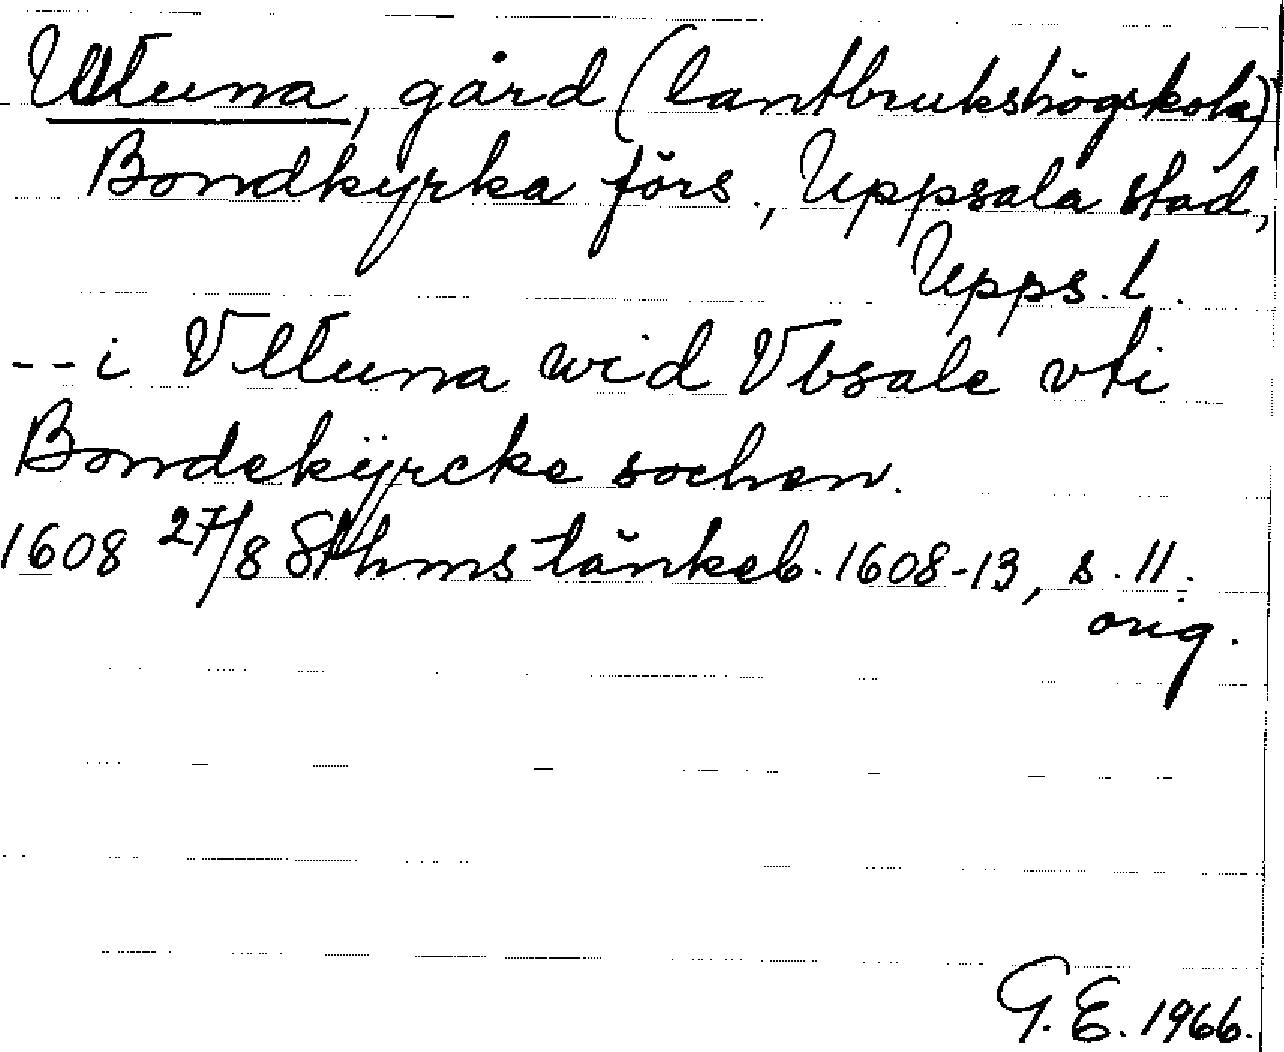 Ultuna, gård (lantbrukshögskola)
Bondkyrka förs., Uppsala stad,
Upps. l.
-- i Vltuna wid Vbsale vti
Bondekÿrcke sochen.
1608 27/8 Sthms tänkeb. 1608-13, s. 11.
orig.
G. E. 1966.